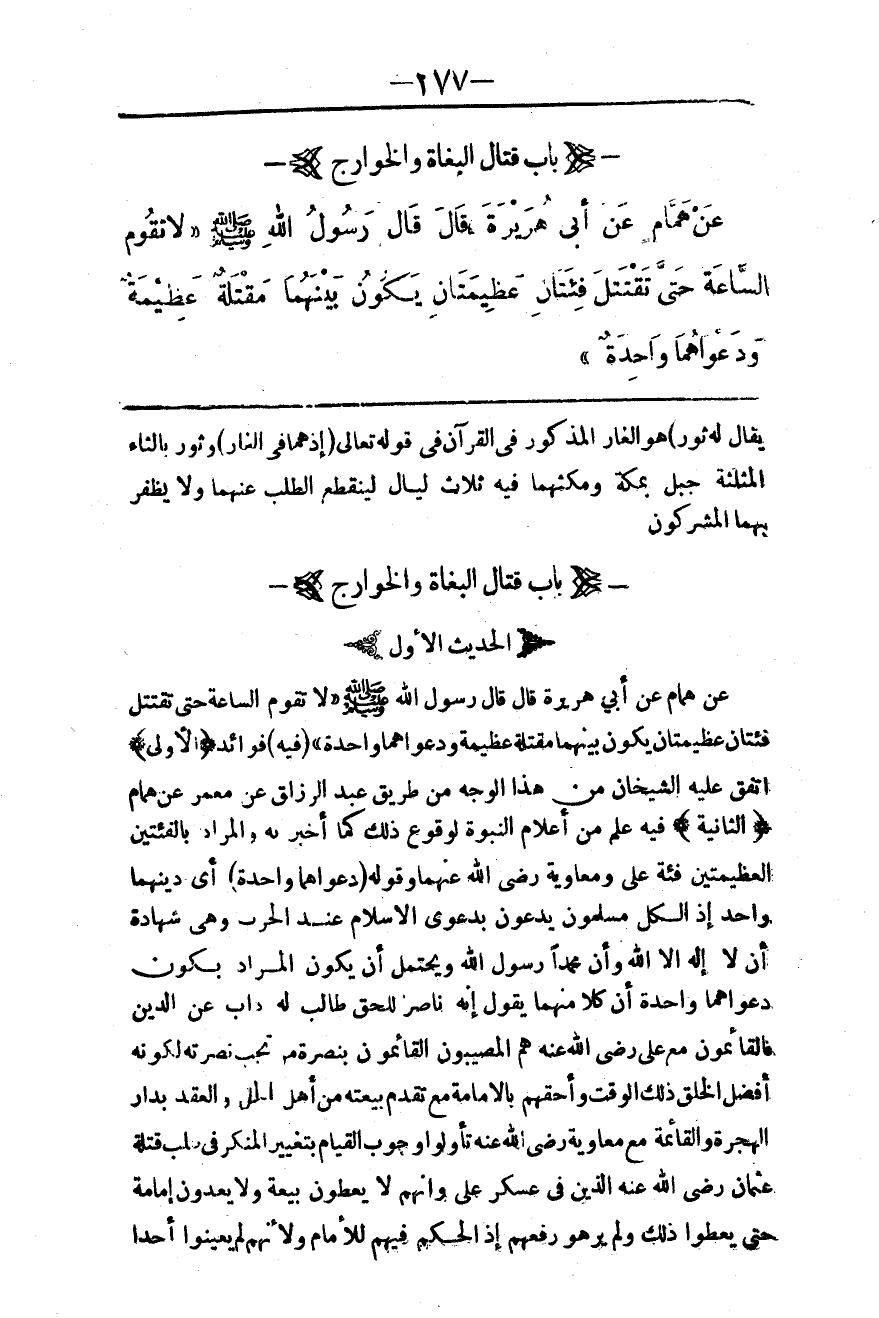 —٢٧٧—
— ﴿ باب قتال البغاة والخوارج ﴾ —
عَنْ هَمَّامٍ عَن أَبى هُرَيْرَةَ قَالَ قَال رَسُولُ اللهِ ﷺ «لا تقُوم
السَّاعَة حَتىَّ تَقْتَتلَ فِئَتَانِ عَظِيمَتَانِ يَكَونُ بَيْنَهُمَا مَقْتَلَةٌ عَظِيْمَةٌ
وَدَعْوَاهُمَا وَاحِدَةٌ »
يقال له ثور) هو الغار المذكور فى القرآن فى قوله تعالى (إذ هما فى الغار) وثور بالثاء
المثلثة جبل بمكة ومكثهما فيه ثلاث ليال لينقطع الطلب عنهما ولا يظفر
بهما المشركون
— ﴿ باب قتال البغاة والخوارج ﴾ —
﴿ الحديث الأول ﴾
عن همام عن أبي هريرة قال قال رسول الله ﷺ «لا تقوم الساعة حتى تقتتل
فئتان عظيمتان يكون بينهما مقتلة عظيمة ودعواهما واحدة» (فيه) فوائد ﴿الأولى﴾
اتفق عليه الشيخان من هذا الوجه من طريق عبد الرزاق عن معمر عن همام
﴿ الثانية ﴾ فيه علم من أعلام النبوة لوقوع ذلك كما أخبر به والمراد بالفئتين
العظيمتين فئة على ومعاوية رضى الله عنهما وقوله (دعواهما واحدة) أى دينهما
واحد إذ الكل مسلمون يدعون بدعوى الاسلام عند الحرب وهى شهادة
أن لا إله الا الله وأن محمداً رسول الله ويحتمل أن يكون المراد بكون
دعواهما واحدة أن كلا منهما يقول إنه ناصر للحق طالب له ذاب عن الدين
فالقائمون مع على رضى الله عنه هم المصيبون القائمون بنصرة من تجب نصرته لكونه
أفضل الخلق ذلك الوقت وأحقهم بالامامة مع تقدم بيعته من أهل الحل والعقد بدار
الهجرة والقائمة مع معاوية رضى الله عنه تأولوا وجوب القيام بتغيير المنكر فى طلب قتلة
عثمان رضى الله عنه الذين فى عسكر على وانهم لا يعطون بيعة ولا يعدون إمامة
حتى يعطوا ذلك ولم ير هو رفعهم إذ الحكم فيهم للأمام ولأنهم لم يعينوا أحدا